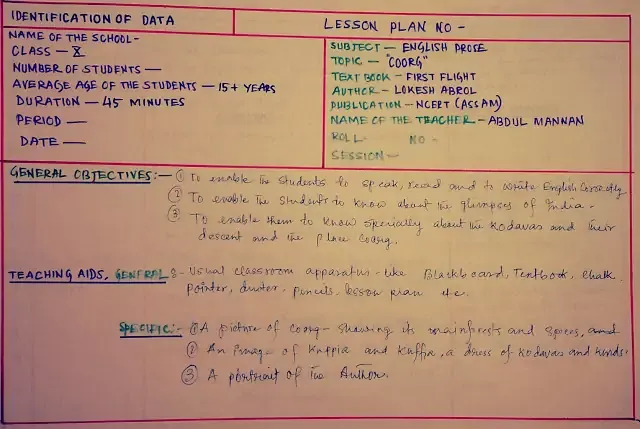 IDENTIFICATION OF DATA
LESSON PLAN NO -
NAME OF THE SCHOOL-
CLASS — X
NUMBER OF STUDENTS —
AVERAGE AGE OF THE STUDENTS — 15+ YEARS
DURATION — 45 MINUTES
PERIOD —
DATE —
SUBJECT — ENGLISH PROSE
TOPIC — "COORG"
TEXT BOOK — FIRST FLIGHT
AUTHOR — LOKESH ABROL
PUBLICATION — NCERT (ASSAM)
NAME OF THE TEACHER — ABDUL MANNAN
ROLL- NO -
SESSION —
GENERAL OBJECTIVES:— ① To enable the students to speak, read and to write English correctly
② To enable the students to know about the glimpses of India -
③ To enable them to know specially about the Kodavas and their
descent and the place Coorg.
TEACHING AIDS, GENERAL :- Usual classroom apparatus - like Blackboard, Textbook, chalk
pointer, duster, pencils, lesson plan etc.
SPECIFIC:- ① A picture of Coorg - showing its rainforests and spices, and
② An image of Kuppia and Kuffia, a dress of Kodavas and Kurds.
③ A portrait of The Author.